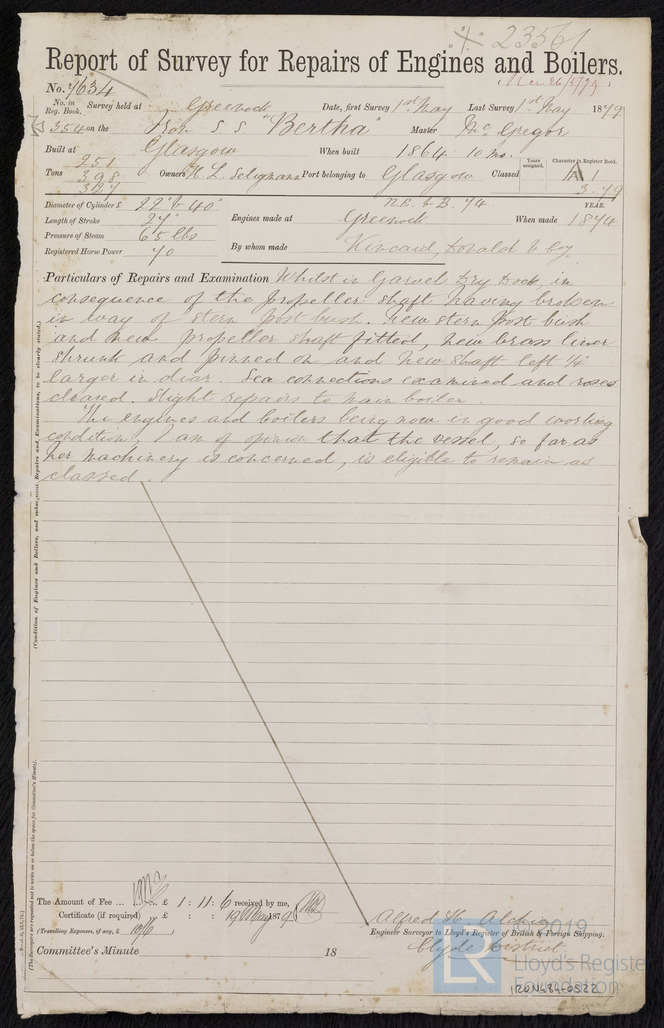 23561
Report of Survey for Repairs of Engines and Boilers.
No. 7634
No. in Reg. Book. Survey held at Greenock Date, first Survey 1st May Last Survey 1st May 1879
354 on the Iron S. S. "Bertha" Master McGregor
Built at Glasgow When built 1864 10 mo.
Years assigned. Character in Register Book.
Tons 251 398 Owners H. L. Seligmann Port belonging to Glasgow Classed A 1
3.79
N.E. & B. 74. YEAR.
Diameter of Cylinders 22" & 40"
Length of Stroke 27" Engines made at Greenock When made 1874
Pressure of Steam 65 lbs
Registered Horse Power 70 By whom made Kincaid, Donald & Co.
Particulars of Repairs and Examination Whilst in Garvel Dry Dock, in
consequence of the propeller shaft having broken
in way of stern post bush. New stern post bush
and new propeller shaft fitted, new brass liner
shrunk and pinned on and new shaft left 1/4"
larger in diar. Sea connections examined and roses
cleared. Slight repairs to main boiler.
The engines and boilers being now in good working
condition, I am of opinion that the vessel, so far as
her machinery is concerned, is eligible to remain as
classed.
(Condition of Engines and Boilers, and subsequent Repairs and Examinations, to be clearly stated.)
(The Surveyors are requested not to write on or below the space for Committee's Minute).
The Amount of Fee ... £ 1 : 11 : 6 received by me,
Certificate (if required) £ : : 19 May 1879
(Travelling Expenses, if any, £ 10/6)
Alfred H.
Engineer Surveyor to Lloyd's Register of British & Foreign Shipping.
Clyde District
Committee's Minute 18
© 2019
LR
Lloyd's Register
Foundation
IRON484-0522